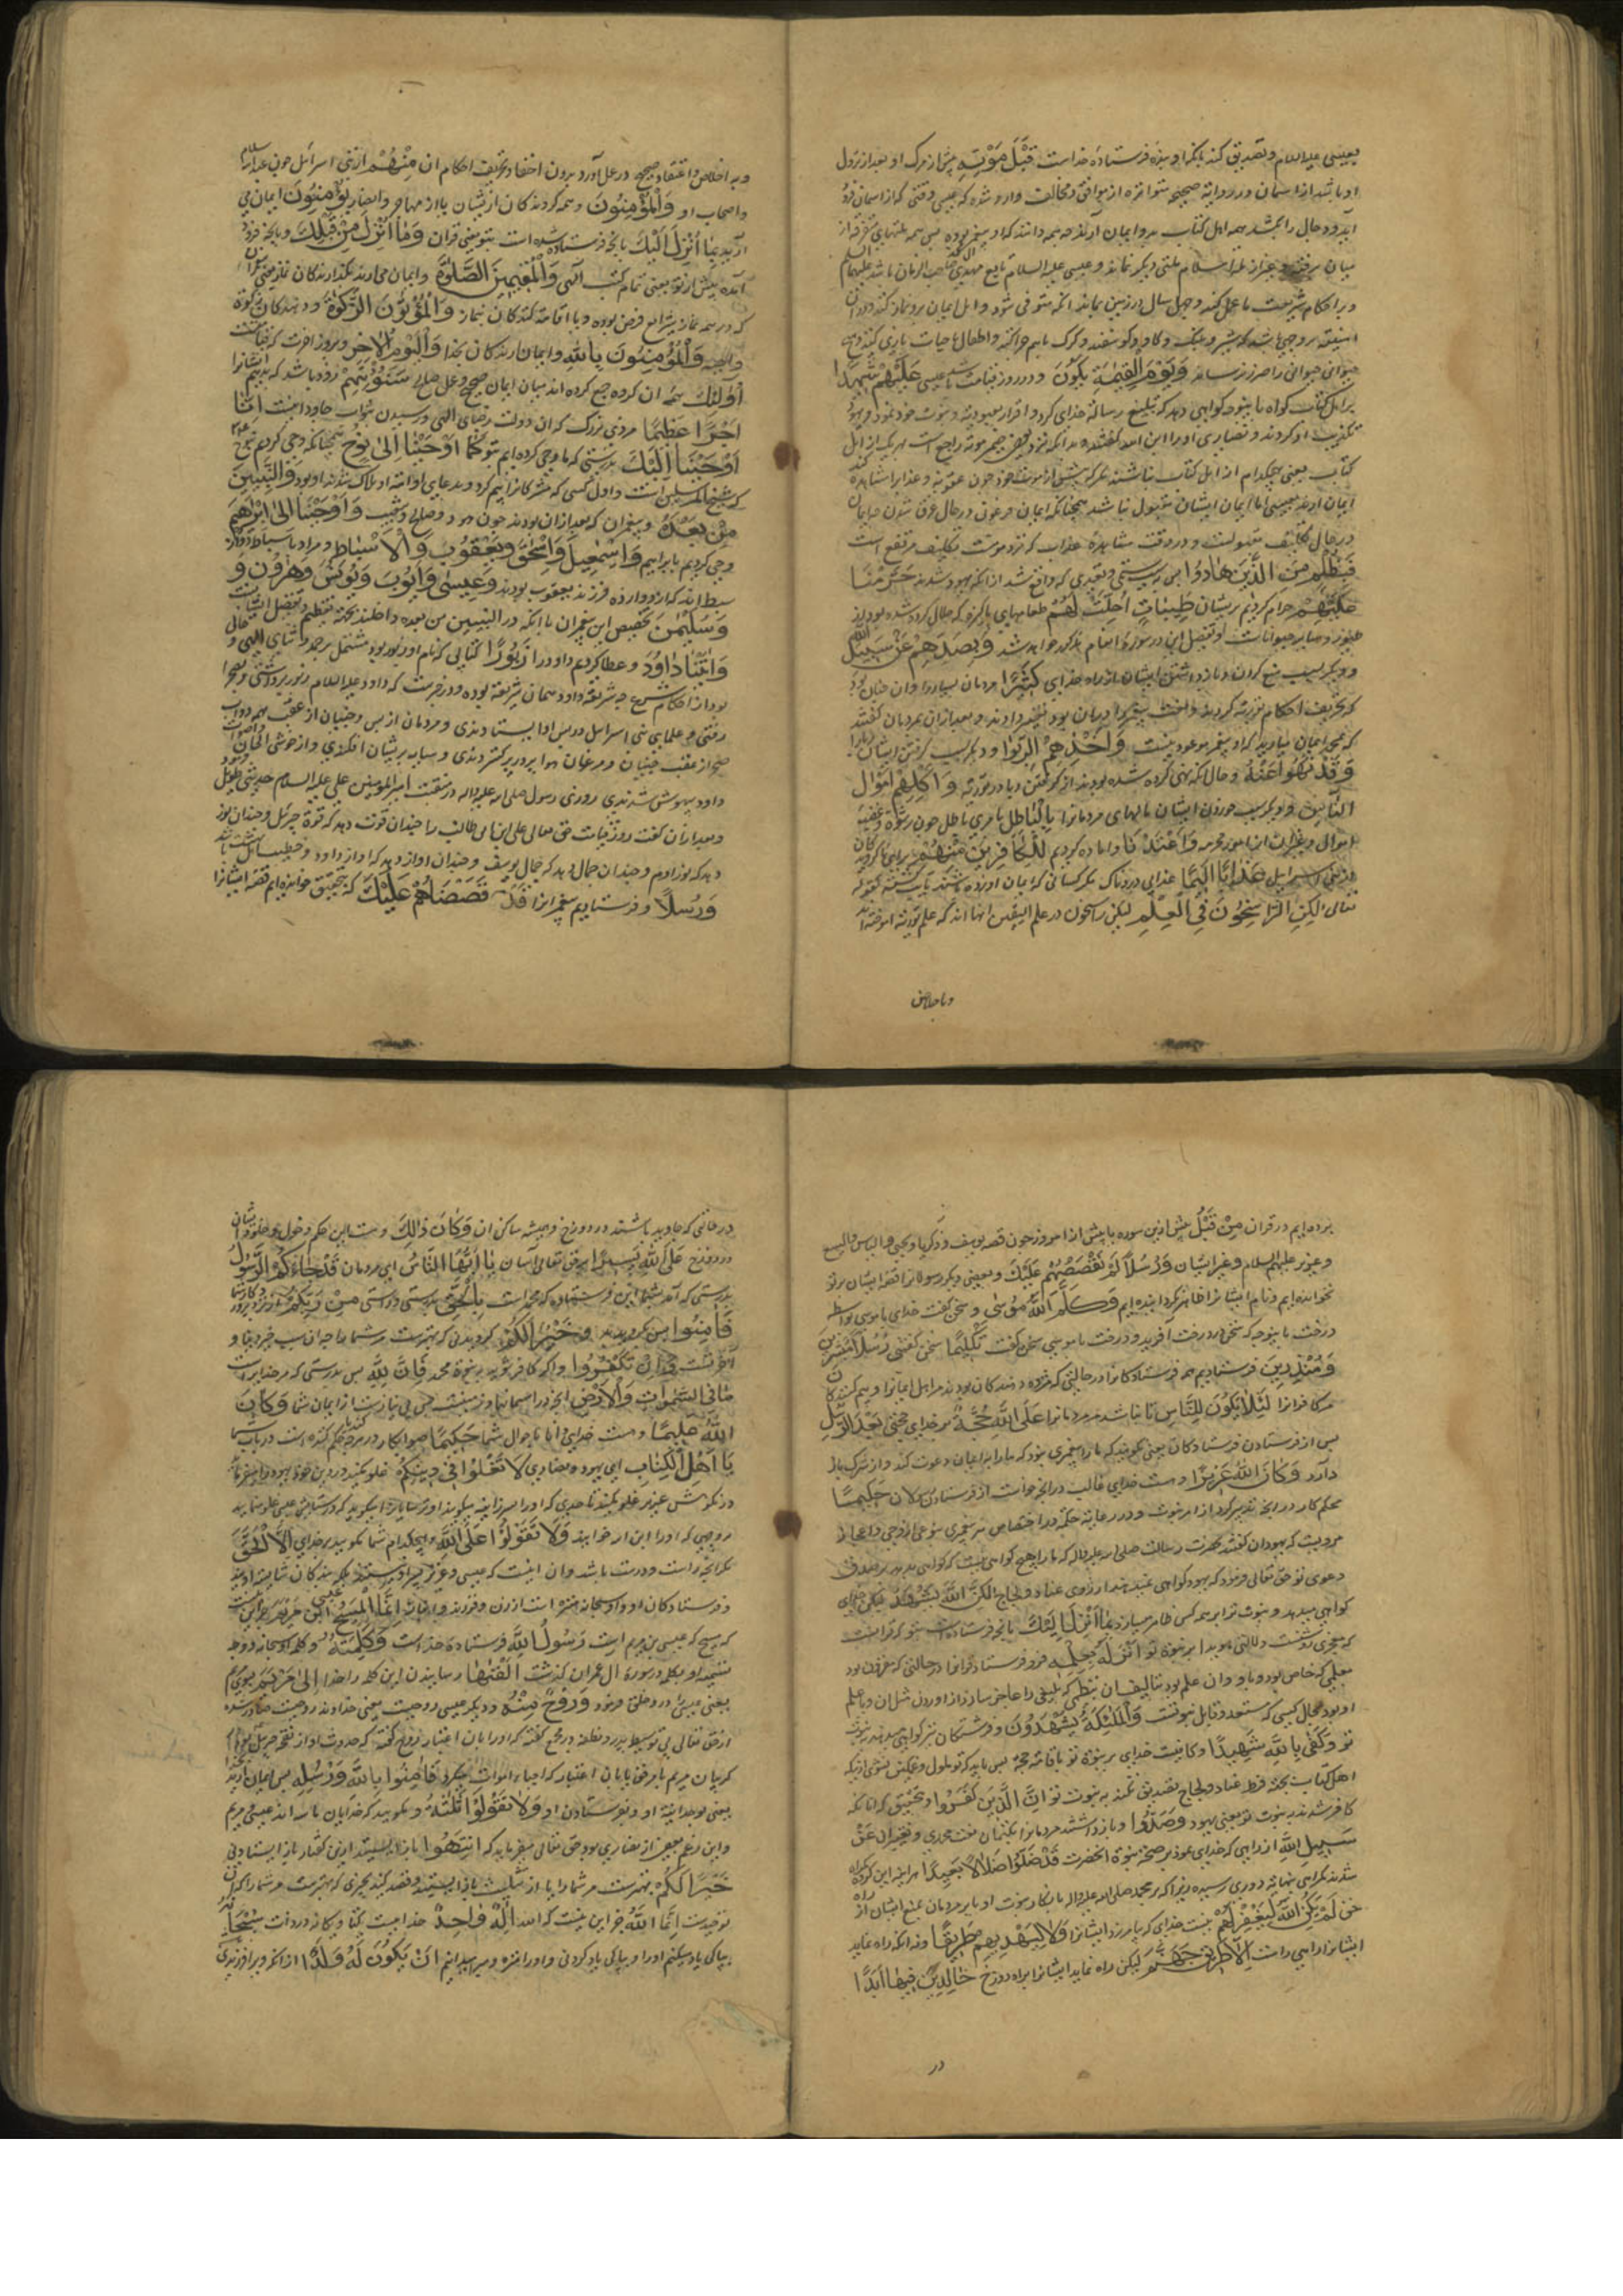 بعیسی علیه السلام و تصدیق کند بانکه او بنده و فرستادهٔ خداست قَبْلَ مَوْتِهِ پیش از مرک او بعد از نزول
او باشد از اسمان و در روایة صحیحه متواتره از موافق و مخالف وارد شده که عیسی وقتی که از اسمان فرود
آید و دجال را بکشد همه اهل کتاب بدو ایمان آرند و همه دانند که او پیغمبر بوده پس همه ملتهای متفرقه از
میان برفته و بغیر از ملة اسلام ملتی دیکر نماند و عیسی علیه السلام تابع مهدی صاحب الزمان باشد علیهما السلام
و بر احکام شریعت ما عمل کند و چهل سال در زمین بماند انکه متوفی شود و اهل ایمان برو نماز کنند
شیر و پلنک و کاو و کوسفند و کرک باهم چرا کنند و اطفال با حیات بازی کنند و هیچ
حیوانی حیوانی را ضرر نرساند وَيَوْمَ الْقِيٰمَةِ يَكُونُ و در روز قیامت باشد عیسی عَلَيْهِمْ شَهِيدًا
بر اهل کتاب کواه کواهی دهد که تبلیغ رسالة خدای کرد و اقرار بعبودیة و نبوت خود نمود و یهود
تکذیب او کردند و نصاری او را ابن الله کفتند
کتاب یعنی هیچکدام از اهل کتاب نباشند مکر که پیش از موت خود چون
ایمان ارند بعیسی اما ایمان ایشان مقبول نباشد همچنانکه ایمان فرعون در حال غرق شدن
در حال تکلیف مقبولست و در وقت مشاهدهٔ عذاب که نزد موتست تکلیف مرتفع است
فَبِظُلْمٍ مِنَ الَّذِينَ هَادُوا پس بسبب ستمی و تعدی که واقع شد از انکه یهود شدند حَرَّمْنَا
عَلَيْهِمْ حرام کردیم بریشان طَيِّبَاتٍ أُحِلَّتْ لَهُمْ طعامهای پاکیزه که حلال کرده شده بود
و سایر حیوانات و تفصیل این در سورهٔ انعام مذکور خواهد شد وَبِصَدِّهِمْ عَنْ سَبِيلِ اللَّهِ
و دیکر بسبب منع کردن و باز داشتن ایشان از راه خدای كَثِيرًا مردمان بسیار را و ان چنان بود
که تحریف احکام توریة کردند
که بعد ازان بمردمان کفتند
وَأَخْذِهِمُ الرِّبٰوا و دیکر بسبب کرفتن ایشان ربا را
وَقَدْ نُهُوا عَنْهُ و حال انکه نهی کرده شده بودند از کرفتن ربا در توریة وَأَكْلِهِمْ أَمْوَالَ
النَّاسِ و دیکر بسبب خوردن ایشان مالهای مردمانرا بِالْبَاطِلِ
وَأَعْتَدْنَا و اماده کردیم لِلْكَافِرِينَ مِنْهُمْ برای کافران
از بنی اسرایل عَذَابًا أَلِيمًا عذابی دردناک مکر کسانی که ایمان اوردند
تعالی لٰكِنِ الرَّاسِخُونَ فِي الْعِلْمِ لیکن راسخون در علم الیقین انها اند که علم توریة
و با خلاص
و به اخلاص و اعتقاد صحیح در عمل آورد بدون اخفا و تحریف احکام ان مِنْهُمْ از بنی اسرائیل چون عبد الله سلام
و اصحاب او وَالْمُؤْمِنُونَ و همه کروندکان از ایشان یا از مهاجر و انصار يُؤْمِنُونَ ایمان می
آرند بِمَا أُنْزِلَ إِلَيْكَ بانچه فرستاده شده است بتو یعنی قران وَمَا أُنْزِلَ مِنْ قَبْلِكَ و بانچه فرود
آمده پیش از تو یعنی تمام کتب الهی وَالْمُقِيمِينَ الصَّلٰوةَ و ایمان می ارند بکذارندکان نماز
که در همه شرایع فرض بوده و یا اقامة کنندکان نماز وَالْمُؤْتُونَ الزَّكٰوةَ و دهندکان زکوة
وَالْمُؤْمِنُونَ بِاللَّهِ و ایمان ارندکان بخدا وَالْيَوْمِ الْآخِرِ و بروز اخرت که قیامتست
أُولٰئِكَ ان کروه جمع کرده اند میان ایمان صحیح و عمل صالح سَنُؤْتِيهِمْ زود باشد که بدهیم ایشانرا
أَجْرًا عَظِيمًا مزدی بزرک که ان دولت رضای الهی و رسیدن بثواب جاودانیست إِنَّا
أَوْحَيْنَا إِلَيْكَ بدرستی که ما وحی کرده ایم بتو كَمَا أَوْحَيْنَا إِلىٰ نُوحٍ همچنانکه وحی کردیم بنوح
که شیخ المرسلین است و اول کسی که مشرکانرا بیم کرد و بدعای او امة او هلاک شدند او بود وَالنَّبِيِّينَ
مِنْ بَعْدِهِ و پیغمبران که بعد ازان بودند چون هود و صالح و شعیب وَأَوْحَيْنَا إِلىٰ إِبْرٰهِيمَ
وحی کردیم بابراهیم وَإِسْمٰعِيلَ وَإِسْحٰقَ وَيَعْقُوبَ وَالْأَسْبَاطِ و مراد باسباط
که از دوازده فرزند یعقوب بودند وَعِيسىٰ وَأَيُّوبَ وَيُونُسَ وَهٰرُونَ
وَسُلَيْمٰنَ تخصیص این پیغمبران با انکه در النبیین من بعده داخلند بجهة تعظیم و تفضیل ایشانست
وَآتَيْنَا دَاوُدَ و عطا کردیم داود را زَبُورًا کتابی که نام او زبور بود مشتمل بر حمد و ثنای الهی و خالی
بود از احکام شرع چه شریعة داود همان شریعة بوده و در خبرست که داود علیه السلام زبور برداشتی و بصحرا
رفتی و علمای بنی اسرایل در پس او ایستادندی و مردمان از پس و جنیان از عقب
از عقب جنیان و مرغان هوا پر در پر کستردندی و سایه بریشان افکندی و از خوشی الحان
داود بیهوش شدندی روزی رسول صلی الله علیه واله در منقبت امیر المومنین علی علیه السلام حدیثی طویل
و بعد ازان کفت روز قیامت حق تعالی علی ابن ابی طالب را چندان قوت دهد که قوة جبرئیل و چندان نور
دهد که نور ادم و چندان جمال دهد که جمال یوسف و چندان اواز دهد که اواز داود و خطیب اهل بهشت باشد
وَرُسُلًا و فرستادیم پیغمبرانرا قَدْ قَصَصْنَاهُمْ عَلَيْكَ که بتحقیق خوانده ایم قصهٔ ایشانرا
بر تو در قران مِنْ قَبْلُ پیش ازین سوره یا پیش از امروز چون قصه یوسف و زکریا و یحیی و الیاس و الیسع
و عزیر علیهم السلام و غیر ایشان وَرُسُلًا لَمْ نَقْصُصْهُمْ عَلَيْكَ و بعضی دیکر رسولانرا قصهٔ ایشان بر تو
نخوانده ایم و نام ایشانرا ظاهر نکردانیده ایم وَكَلَّمَ اللَّهُ مُوسىٰ و سخن کفت خدای با موسی بواسطه
درخت باینوجه که سخن در درخت آفرید و درخت با موسی سخن کفت تَكْلِيمًا سخن کفتنی رُسُلًا مُبَشِّرِينَ
وَمُنْذِرِينَ فرستادیم همه فرستادکانرا در حالتی که مژده دهندکان بودند مر اهل ایمانرا و بیم کنندکان
مر کافرانرا لِئَلَّا يَكُونَ لِلنَّاسِ تا نباشد مر مردمانرا عَلَى اللَّهِ حُجَّةٌ بر خدای حجتی بَعْدَ الرُّسُلِ
پس از فرستادن فرستادکان یعنی نکویند که ما را پیغمبری نبود که ما را بایمان دعوت کند و از شرک باز
دارد وَكَانَ اللَّهُ عَزِيزًا و هست خدای غالب در انچه خواست از فرستادن رسولان حَكِيمًا
محکم کار در انچه تدبیر کرد از امر نبوت و در رعایة حکمة در اختصاص هر پیغمبری بنوعی از وحی و اعجاز
مرویست که یهودان کفتند حضرت رسالت صلی الله علیه واله که ما را هیچ کواهی نیست که کواهی بدهد بر صدق
دعوی تو حق تعالی فرمود که یهود کواهی نمیدهند از روی عناد و لجاج لٰكِنِ اللَّهُ يَشْهَدُ لیکن خدای
کواهی میدهد و نبوت ترا بر همه کس ظاهر میسازد بِمَا أَنْزَلَ إِلَيْكَ بانچه فرستاده است بتو که قرانست
که معجزی روشنست و دلالتی هویدا بر نبوة تو أَنْزَلَهُ بِعِلْمِهِ فرو فرستاد قرانرا در حالتی که مقرون بود
بعلمی که خاص بود باو و ان علم بود بتالیف ان بنظمی که بلیغی را عاجز سازد از اوردن مثل ان و یا علم
او بود بحال کسی که مستعد و قابل نبوتست وَالْمَلٰئِكَةُ يَشْهَدُونَ و فرشتکان نیز کواهی میدهند بنبوت
تو وَكَفىٰ بِاللَّهِ شَهِيدًا و کافیست خدای بر نبوة تو باقامة حجة پس باید که تو ملول و غمکین نشوی از انکه
اهل کتاب بجهة فرط عناد و لجاج تصدیق نکنند به نبوت تو إِنَّ الَّذِينَ كَفَرُوا بتحقیق که انانکه
کافر شدند به نبوت تو یعنی یهود وَصَدُّوا و باز داشتند مردمانرا بکتمان نعت محمدی عَنْ
سَبِيلِ اللَّهِ از راهی که خدای نموده بر صحة نبوة انحضرت قَدْ ضَلُّوا ضَلَالًا بَعِيدًا هر اینه این کروه کمراه
شدند کمراهی بنهایة دوری رسیده زیرا که بر محمد صلی الله علیه واله بانکار نبوت او یا بر مردمان بمنع ایشان از راه
حق لَمْ يَكُنِ اللَّهُ لِيَغْفِرَ لَهُمْ نیست خدای که بیامرزد ایشانرا وَلَا لِيَهْدِيَهُمْ طَرِيقًا و نه انکه راه نماید
ایشانرا براهی راست إِلَّا طَرِيقَ جَهَنَّمَ لیکن راه نماید ایشانرا براه دوزخ خَالِدِينَ فِيهَا أَبَدًا
در
در حالتی که جاوید باشند در دوزخ و همیشه ساکن ان وَكَانَ ذٰلِكَ و هست این حکم دخول و خلود ایشان
در دوزخ عَلَى اللَّهِ يَسِيرًا بر حق تعالی اسان يَا أَيُّهَا النَّاسُ ای مردمان قَدْ جَاءَكُمُ الرَّسُولُ
بدرستی که آمد بشما این فرستاده که محمد است بِالْحَقِّ بدرستی و راستی مِنْ رَبِّكُمْ از نزد پروردکار شما
فَآمِنُوا پس بکروید خَيْرًا لَكُمْ کرویدنی که بهترست مر شما را
وَإِنْ تَكْفُرُوا و اکر کافر شوید بنبوة محمد فَإِنَّ لِلَّهِ پس بدرستی که مر خدایراست
مَا فِي السَّمٰوَاتِ وَالْأَرْضِ انچه در اسمانها و زمینست پس بی نیازست از ایمان شما وَكَانَ
اللَّهُ عَلِيمًا و هست خدای دانا باحوال شما حَكِيمًا صواب کار در هرچه حکم کننده است در باب شما
يَا أَهْلَ الْكِتَابِ ای یهود و نصاری لَا تَغْلُوا فِي دِينِكُمْ غلو مکنید در دین خود
وَلَا تَقُولُوا عَلَى اللَّهِ و هیچکدام شما مکویید بر خدای إِلَّا الْحَقَّ
مکر انچه راست و درست باشد و ان اینست که عیسی و عزیر پسر او نیستند بلکه بندکان شایستهٔ اویند
و فرستادکان او و او سبحانه منزه است از زن و فرزند إِنَّمَا الْمَسِيحُ عِيسَى ابْنُ مَرْيَمَ جز این نیست
که مسیح که عیسی بن مریم است رَسُولُ اللَّهِ فرستادهٔ خداست وَكَلِمَتُهُ و کلمهٔ او سبحانه و وجه
تسمیه او بکلمه در سورهٔ ال عمران کذشت أَلْقٰيهَا رسانیدن این کلمه را خدا إِلىٰ مَرْيَمَ بسوی مریم
یعنی عیسی را درو خلق فرمود وَرُوحٌ مِنْهُ و دیکر عیسی روحیست یعنی خداوند روحیست صادر شده
از حق تعالی بی توسط پدر و نطفه
کریبان مریم یا بر حق یا بان اعتبار که احیاء اموات میکردی فَآمِنُوا بِاللَّهِ وَرُسُلِهِ پس ایمان ارید
یعنی بوحدانیة او و بفرستادن او وَلَا تَقُولُوا ثَلٰثَةٌ و مکویید که خدایان سه اند عیسی و مریم
و این زعم بعضی از نصاری بود حق تعالی میفرماید که انْتَهُوا باز ایستید ازین کفتار باز ایستادنی
خَيْرًا لَكُمْ بهترست مر شما را یا از تثلیث باز ایستید و قصد کنید بچیزی که بهترست مر شما را که ان
توحیدست إِنَّمَا اللَّهُ جز این نیست که الله إِلٰهٌ وَاحِدٌ خداییست یکتا و یکانه در ذات سُبْحَانَهُ
بپاکی یاد میکنم او را و بپاکی یاد کردنی و او را منزه و مبرا میدانیم أَنْ يَكُونَ لَهُ وَلَدٌ از انکه ویرا فرزندی